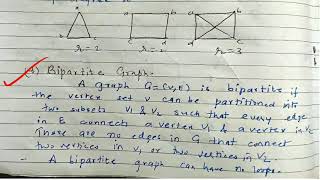 a
b
c
a
b
d
c
a
b
d
c
r = 2
r = 2
r = 3
Bipartite Graph -
A graph G = (V,E) is bipartite if
the vertex set V can be partitioned into
two subsets V1 & V2 such that every edge
in E connects a vertex V1 & a vertex in V2
There are no edges in G that connect
two vertices in V1 or two vertices in V2.
- A bipartite graph can have no loops.